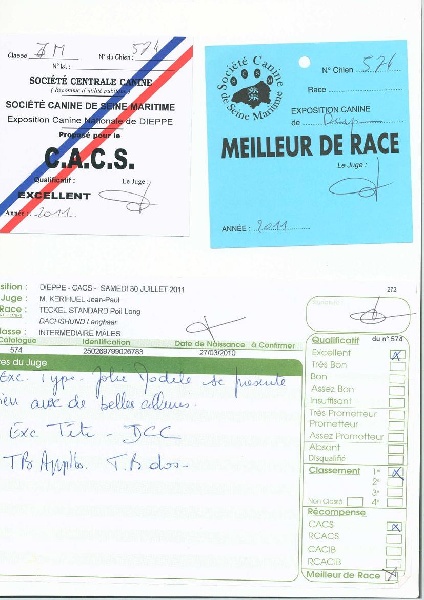 Classe IM N° du Chien: 574
N° Id.:
SOCIÉTÉ CENTRALE CANINE
(Reconnue d'utilité publique)
SOCIÉTÉ CANINE DE SEINE MARITIME
Exposition Canine Nationale de DIEPPE
Proposé pour le
C.A.C.S.
Qualificatif: Le Juge:
EXCELLENT
Année: 2011
Société Canine
de Seine Maritime
N° Chien 574
Race
EXPOSITION CANINE
de Dieppe
MEILLEUR DE RACE
Le Juge:
ANNÉE: 2011
sition: DIEPPE - CACS - SAMEDI 30 JUILLET 2011
Juge: M. KERIHUEL Jean-Paul
Race: TECKEL STANDARD Poil Long
DACHSHUND Langhaar
lasse: INTERMEDIAIRE MALES
273
Catalogue Identification Date de Naissance à Confirmer
574 250269799026783 27/03/2010
res du Juge
Exc. Type. Jolie Modèle se présente
ien avec de belles allures.
Exc Tête - DCC
TB Applbs. T.B dos-
Qualificatif du n° 574
Excellent X
Très Bon
Bon
Assez Bon
Insuffisant
Très Prometteur
Prometteur
Assez Prometteur
Absent
Disqualifié
Classement 1° X
2°
3°
Non Classé 4°
Récompense
CACS X
RCACS
CACIB
RCACIB
Meilleur de Race X